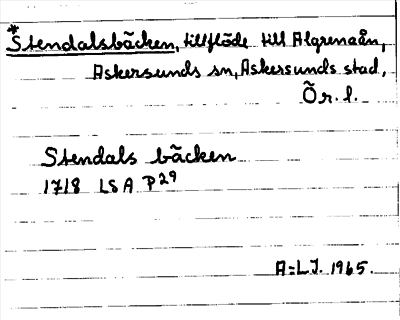 *Stendalsbäcken, tillflöde till Algrenaån,
Askersunds sn, Askersunds stad,
Ör. l.
Stendals bäcken
1718 LSA P29
A=LJ. 1965.